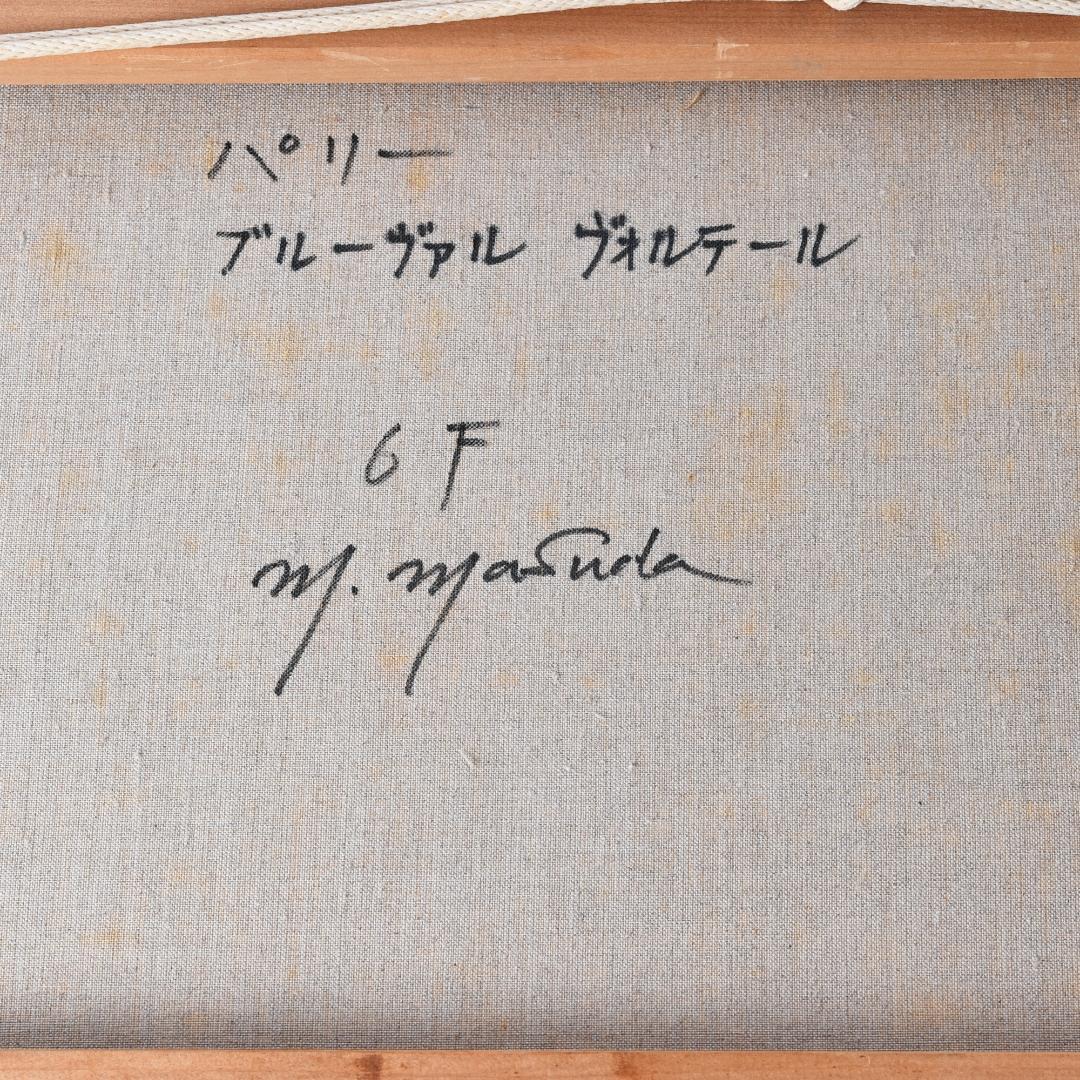 パリー
ブルーヴァル ヴォルテール
6 F
M. Masuda